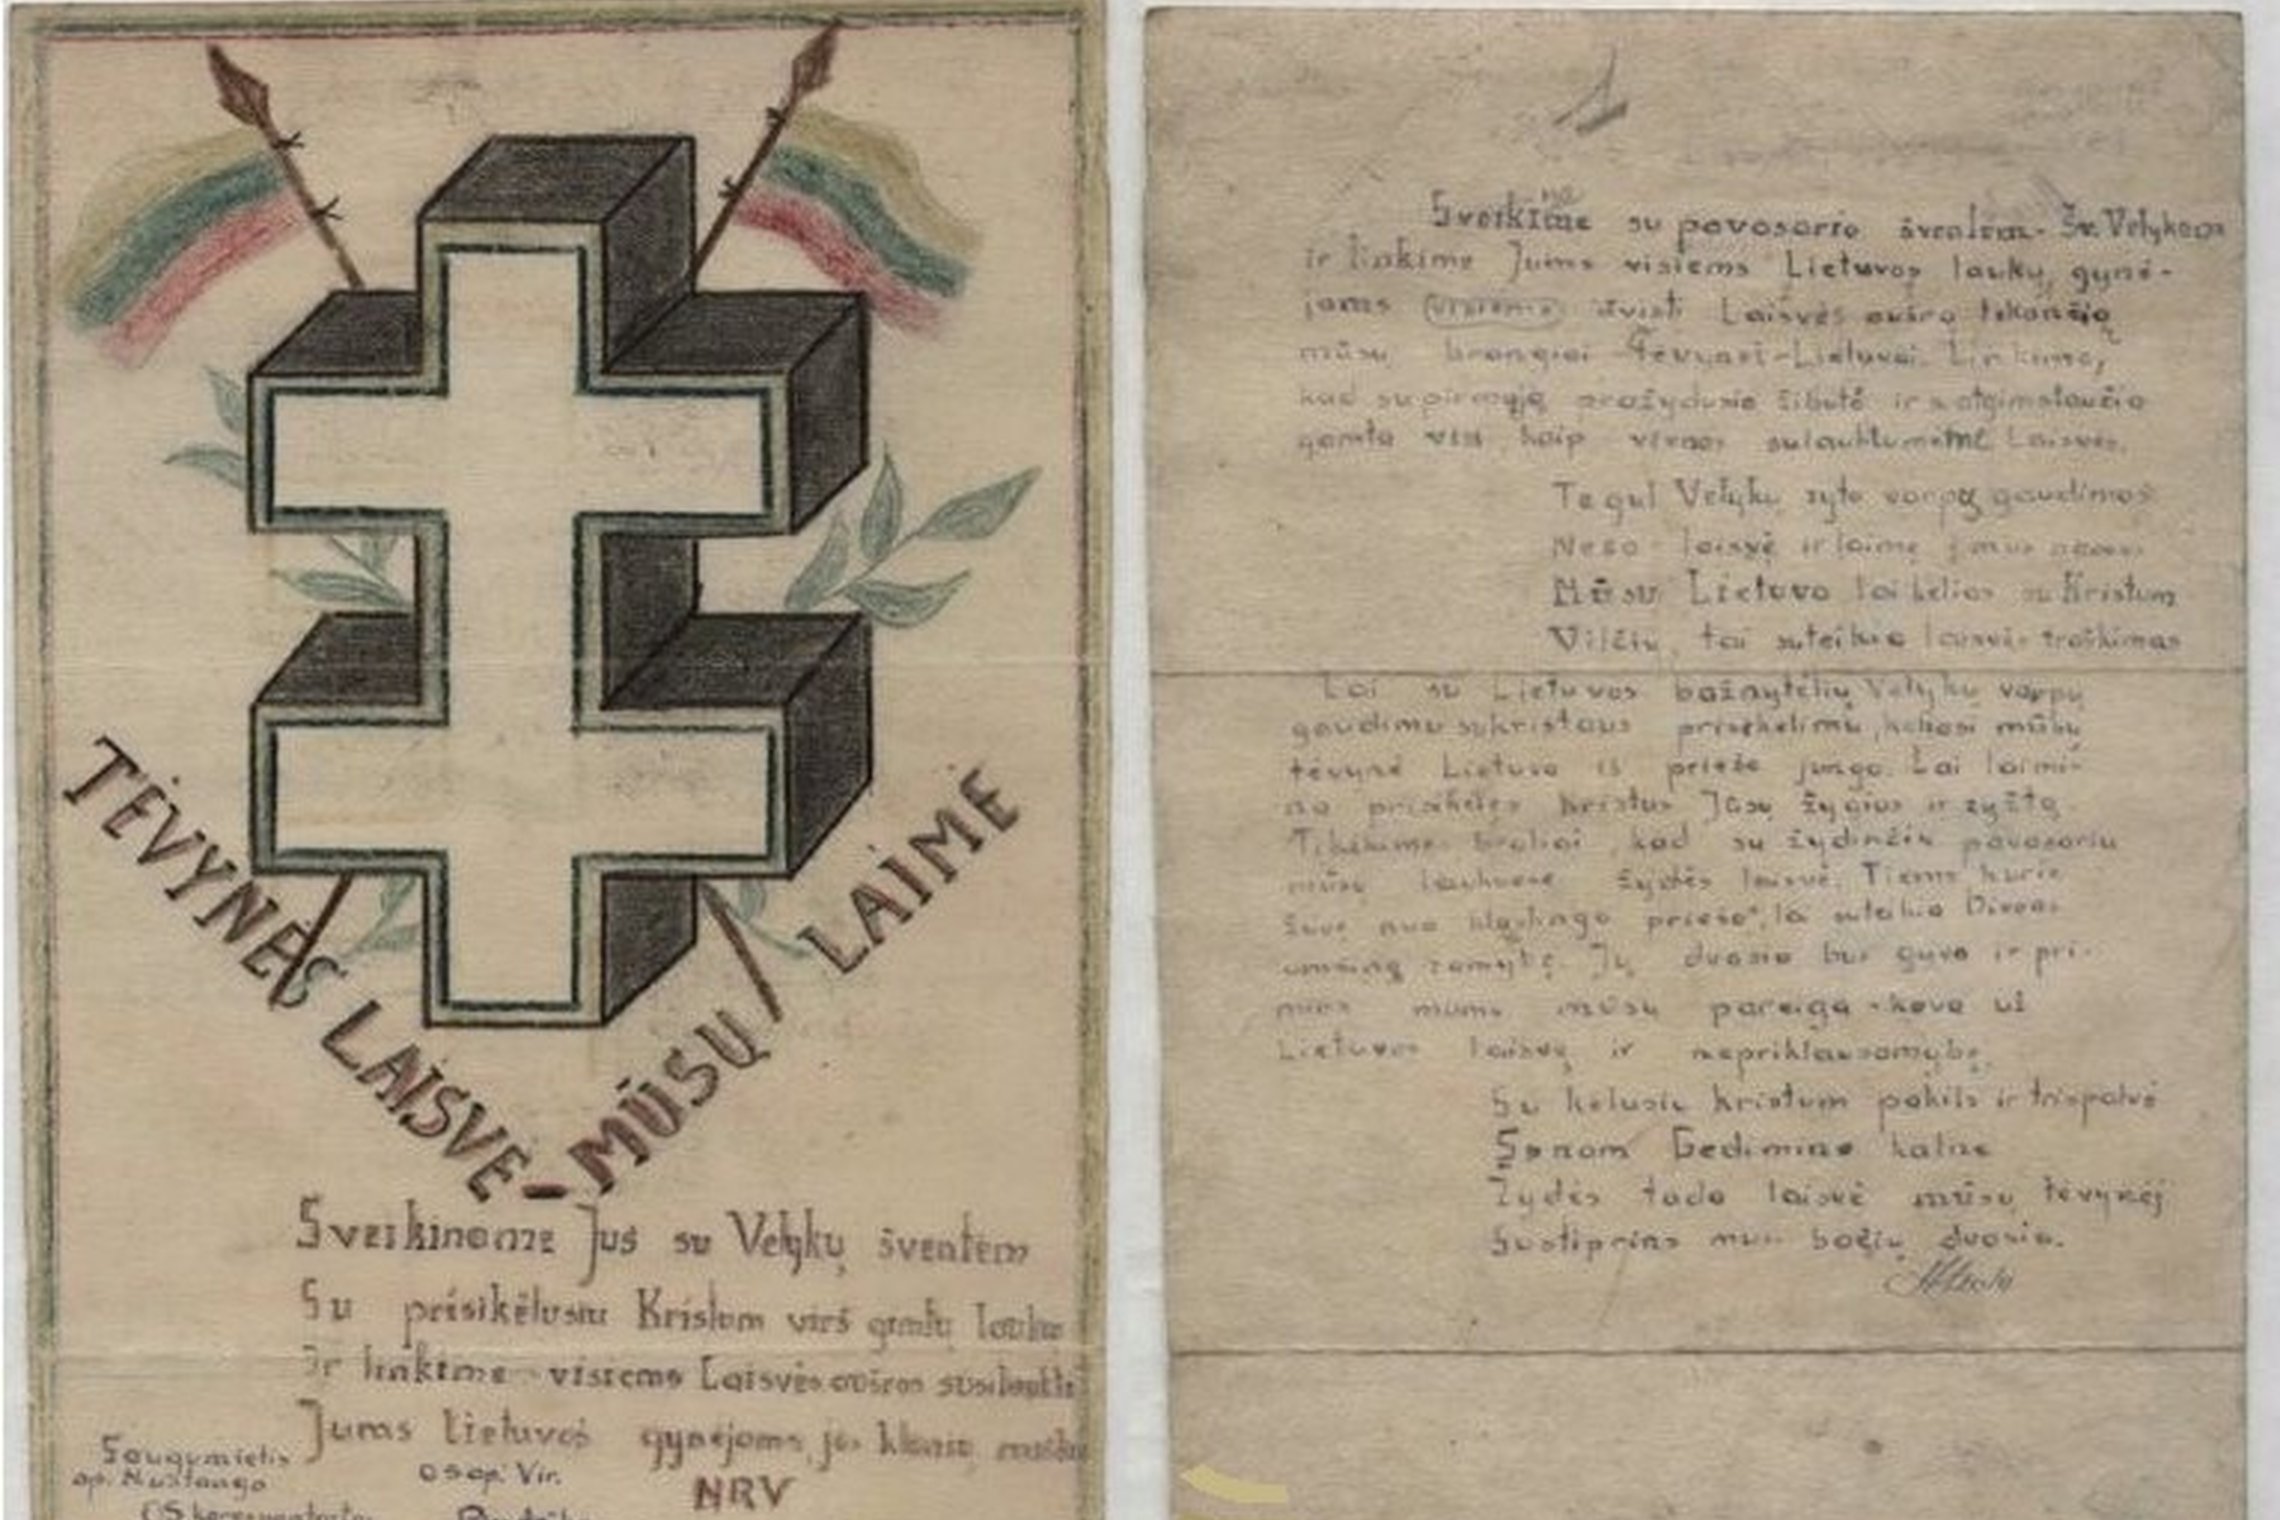 TĖVYNĖS LAISVĖ – MŪSŲ LAIMĖ
Sveikiname Jus su Velykų šventėm
Su prisikėlusiu Kristum virš gimtų laukų
Ir linkime visiems Laisvės aušros susilaukti
Jums Lietuvos gynėjams, jos
NRV
Saugumietis
ap.
OS ap. Vir.
Sveikiname su pavasario šventėm - Šv. Velykom
ir linkime Jums visiems Lietuvos laukų gynė-
jams visiems išvisti Laisvės aušrą tekančią
mūsų brangiai Tėvynei-Lietuvai. Linkime,
kad su pirmąja pražydusia žibutė ir su atgimstančia
gamta visi kaip vienas sulauktumėme Laisvės.
Tegul Velykų ryto varpų gaudimas
Neša laisvę ir laimę į mus
Mūsų Lietuva lai kelias su Kristum
Vilčių tai suteikia laisvės troškimas
Lai su Lietuvos bažnytėlių Velykų varpų
gaudimu su Kristaus prisikėlimu, keliasi mūsų
tėvynė Lietuva iš priešo jungo. Lai laimi-
na prisikėlęs Kristus Jūsų žygius ir ryžtą.
Tikėkime broliai, kad su žydinčiu pavasariu
mūsų laukuose žydės laisvė. Tiems kurie
žuvo nuo klastingo priešo, lai suteikia Dievas
amžiną ramybę. Jų dvasia bus gyva ir pri-
mins mums mūsų pareigą - kovą už
Lietuvos laisvę ir nepriklausomybę.
Su kėlusiu Kristum pakils ir trispalvė
Senam Gedimino kalne
Žydės tada laisvė mūsų tėvynėj
Sustiprins mus bočių dvasia.